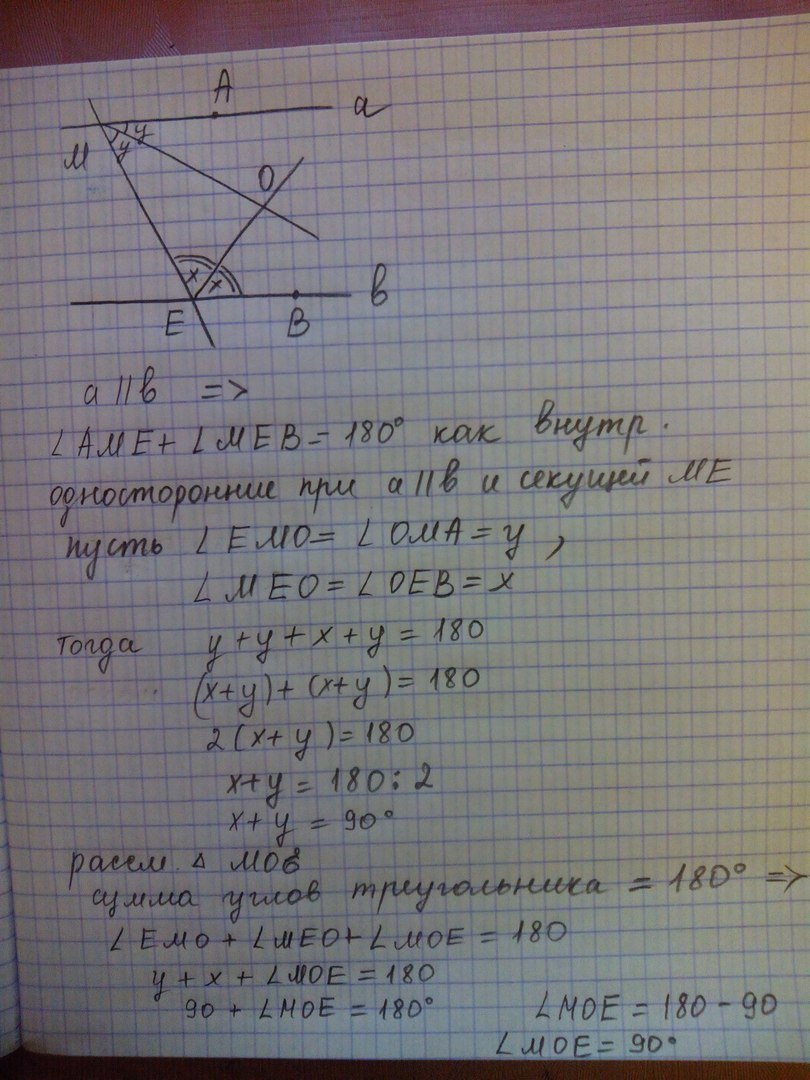 A
a
M
y
y
O
x
x
E
B
в
a || в =>
∠AME + ∠MEB = 180° как внутр.
односторонние при a || в и секущей ME
пусть ∠EMO = ∠OMA = y,
∠MEO = ∠OEB = x
тогда y + y + x + y = 180
(x+y) + (x+y) = 180
2(x+y) = 180
x+y = 180 : 2
x+y = 90°
рассм. ▵ MOE
сумма углов треугольника = 180° =>
∠EMO + ∠MEO + ∠MOE = 180
y + x + ∠MOE = 180
90 + ∠MOE = 180° ∠MOE = 180 - 90
∠MOE = 90°